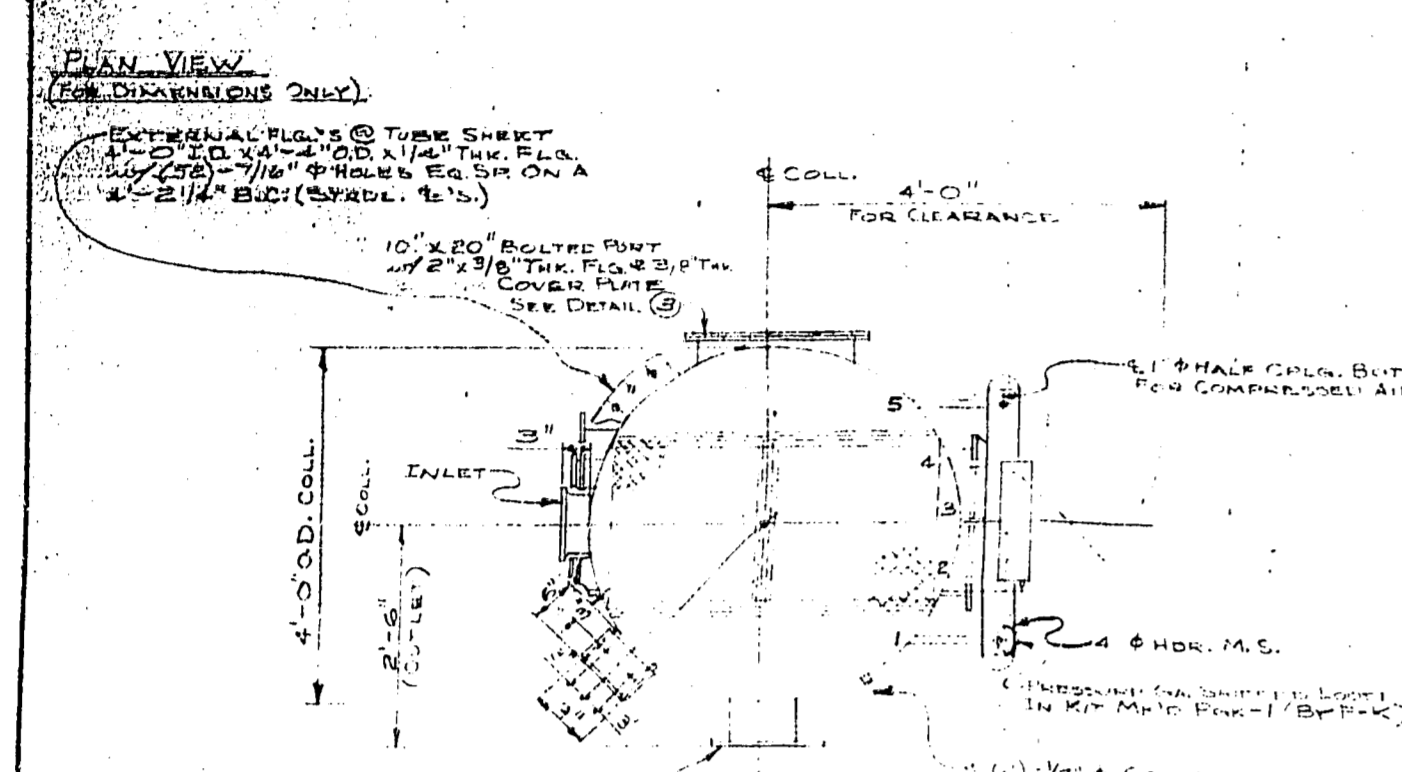 PLAN VIEW
(FOR DIMENSIONS ONLY)
EXTERNAL FLG.'S @ TUBE SHEET
4'-0" I.D. x 4'-4" O.D. x 1/4" THK. FLG.
w/ (52)-7/16" Φ HOLES EQ. SP. ON A
4'-2 1/4" B.C. (STRDL. ℄'S.)
10" x 20" BOLTED PORT
w/ 2" x 3/8" THK. FLG. & 3/8" THK.
COVER PLATE
SEE DETAIL (3)
℄ COLL.
4'-0"
FOR CLEARANCE
℄ 1" Φ HALF CPLG. BOT
FOR COMPRESSED AI
5
3"
INLET
4
3
2
1
4'-0" O.D. COLL.
℄ COLL.
2'-6"
(OUTLET)
4" Φ HDR. M.S.
PRESSURE GA. SHIPPED LOOSE
IN KIT MK'D FOK-1 (BY F-K)
3"
2"